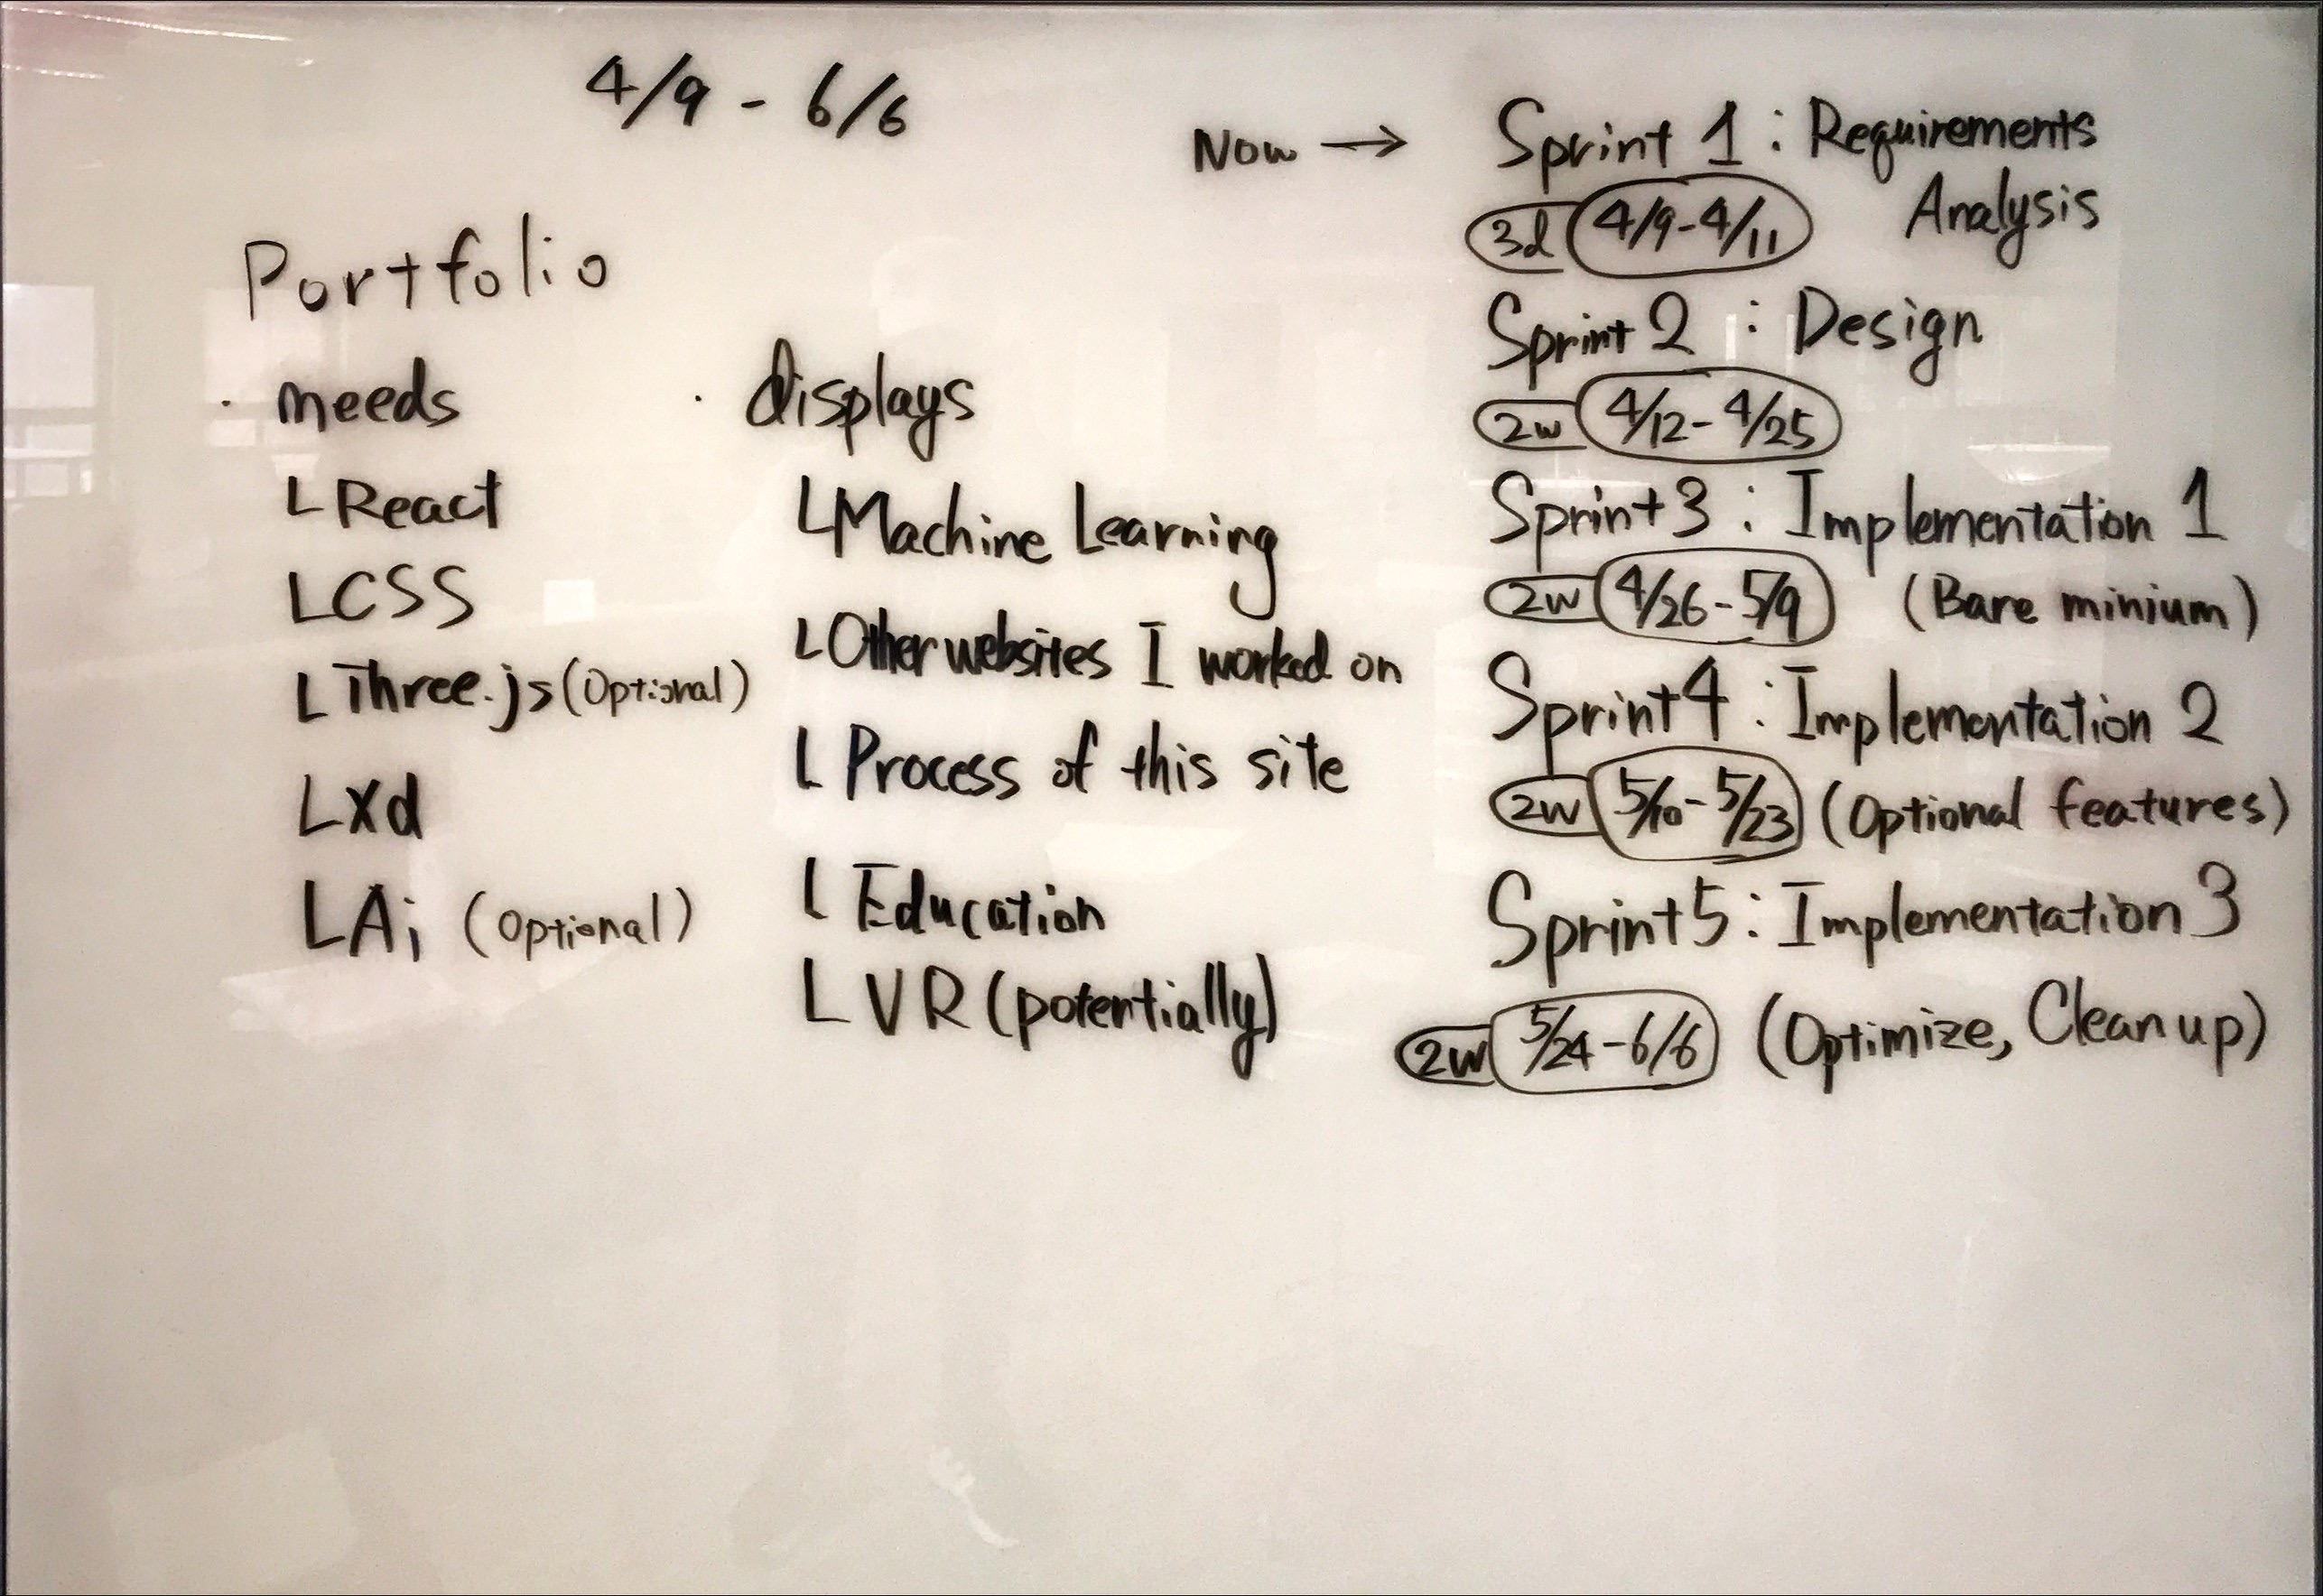 4/9 - 6/6
Portfolio
· needs
L React
L CSS
L Three.js (Optional)
L Xd
L Ai (Optional)
· displays
L Machine Learning
L Other websites I worked on
L Process of this site
L Education
L VR (potentially)
Now → Sprint 1 : Requirements
Analysis
3d 4/9-4/11
Sprint 2 : Design
2w 4/12-4/25
Sprint 3 : Implementation 1
2w 4/26-5/9 (Bare minium)
Sprint 4 : Implementation 2
2w 5/10-5/23 (Optional features)
Sprint 5 : Implementation 3
2w 5/24-6/6 (Optimize, Clean up)